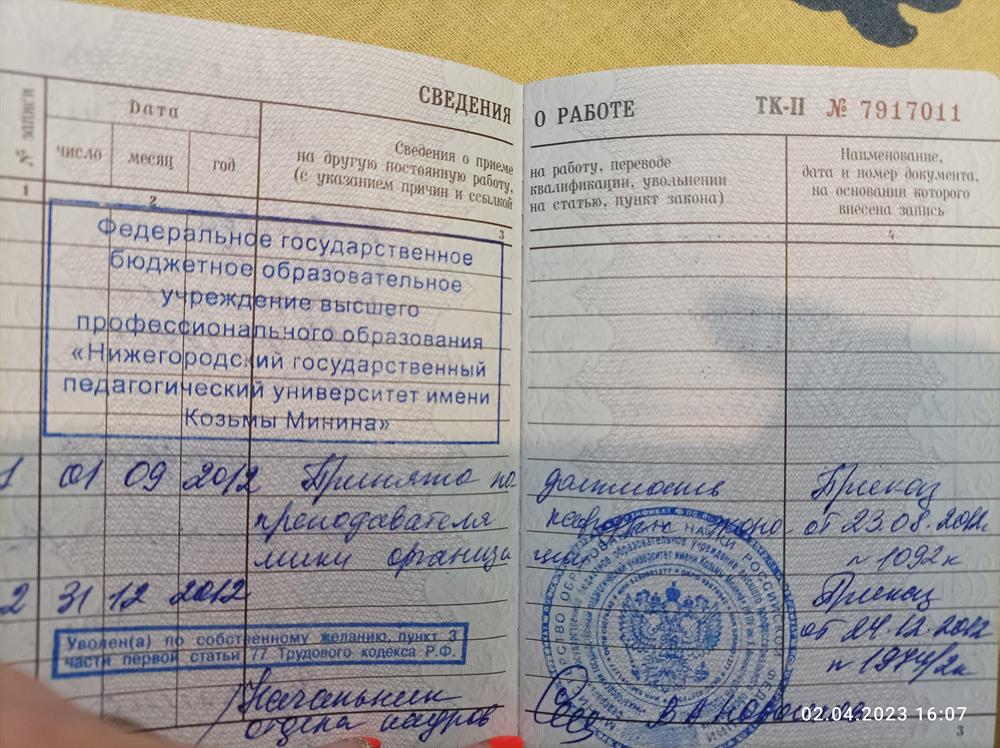 СВЕДЕНИЯ О РАБОТЕ ТК-II № 7917011
№ записи
Дата
число месяц год
Сведения о приеме
на другую постоянную работу,
(с указанием причин и ссылкой
на работу, переводе
квалификации, увольнении
на статью, пункт закона)
Наименование,
дата и номер документа,
на основании которого
внесена запись
1 2 3 4
Федеральное государственное
бюджетное образовательное
учреждение высшего
профессионального образования
«Нижегородский государственный
педагогический университет имени
Козьмы Минина»
1 01 09 2012 Принята на должность Приказ
преподавателя кафедры эконо- от 23.08.2012
мики организации n 1092к
2 31 12 2012 Приказ
Уволен(а) по собственному желанию, пункт 3
части первой статьи 77 Трудового кодекса Р.Ф.
от 24.12.2012
n 1974/2к
Начальник
отдела кадров
02.04.2023 16:07
3